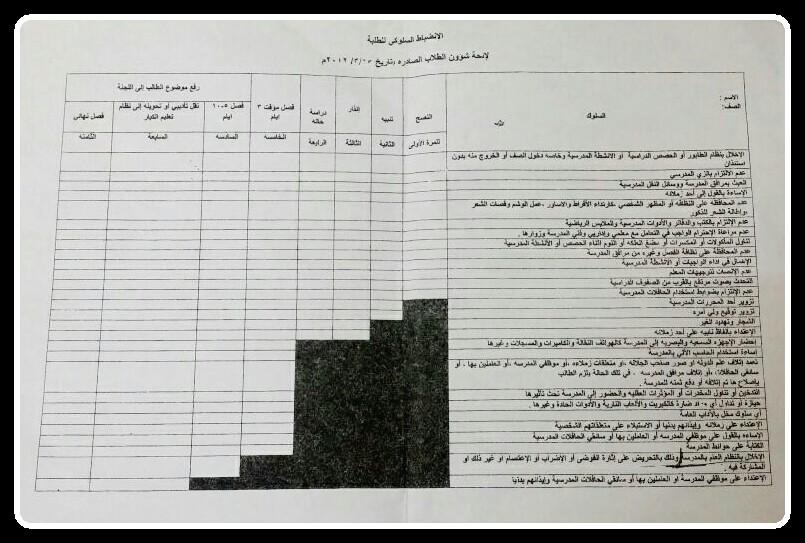 الانضباط السلوكي للطلبة
لائحة شؤون الطلاب الصادره ،تاريخ ٢٠١٢/٣/ م
الاسم :
الصف:
السلوك
النصح
تنبيه
إنذار
دراسة حاله
فصل مؤقت ٣ ايام
رفع موضوع الطالب إلى اللجنة
فصل ٥-١٠ ايام
نقل تأديبي أو تحويله إلى نظام تعليم الكبار
فصل نهائي
للمرة الأولى
الثانية
الثالثة
الرابعة
الخامسه
السادسه
السابعة
الثامنه
الإخلال بنظام الطابور أو الحصص الدراسية او الانشطة المدرسية وخاصه دخول الصف أو الخروج منه بدون
استئذان
عدم الالتزام بالزي المدرسي
العبث بمرافق المدرسة ووسائل النقل المدرسية
الإساءة بالقول إلى أحد زملائه
عدم المحافظه على النظافه أو المظهر الشخصي ،كارتداء الأقراط والاساور ،عمل الوشم وقصات الشعر
،وإطالة الشعر للذكور
عدم الإلتزام بالكتب والدفاتر والأدوات المدرسية والملابس الرياضية
عدم مراعاة الإحترام الواجب في التعامل مع معلمي وإداريي وفني المدرسة وزوارها .
تناول المأكولات أو المكسرات أو مضغ العلكه أو النوم أثناء الحصص أو الأنشطة المدرسية
عدم المحافظة على نظافة الفصل وغيره من مرافق المدرسة
الإهمال في اداء الواجبات أو الانشطة المدرسية
عدم الإنصات لتوجيهات المعلم
التحدث بصوت مرتفع بالقرب من الصفوف الدراسية
عدم الإلتزام بضوابط استخدام الحافلات المدرسية
تزوير أحد المحررات المدرسية
تزوير توقيع ولي أمره
الشجار وتهديد الغير
الإعتداء بألفاظ نابيه على أحد زملائه
إحضار الاجهزه السمعيه والبصريه إلى المدرسة كالهواتف النقالة والكاميرات والمسجلات وغيرها
إساءة استخدام الحاسب الآلي بالمدرسة
تعمد إتلاف علم الدوله او صور صاحب الجلاله ،أو متعلقات زملاءه ،أو موظفي المدرسه ،أو العاملين بها ، أو
سائقي الحافلات ،أو إتلاف مرافق المدرسه ، في تلك الحالة يلزم الطالب
بإصلاح ما تم إتلافه أو دفع ثمنه للمدرسة .
التدخين أو تناول المخدرات أو المؤثرات العقليه والحضور إلى المدرسة تحت تأثيرها
حيازة أو تداول أي مواد ضارة كالكبريت والألعاب النارية والأدوات الحادة وغيرها .
أي سلوك مخل بالآداب العامة
الإعتداء على زملائه وإيذائهم بدنيا أو الاستيلاء على متعلقاتهم الشخصية
الإساءه بالقول على موظفي المدرسه أو العاملين بها أو سائقي الحافلات المدرسية
الكتابة على حوائط المدرسة
الإخلال بالنظام العام بالمدرسة وذلك بالتحريض على إثارة الفوضى أو الإضراب أو الإعتصام او غير ذلك او
المشاركة فيه .
الإعتداء على موظفي المدرسة او العاملين بها أو سائقي الحافلات المدرسية وإيذائهم بدنيا